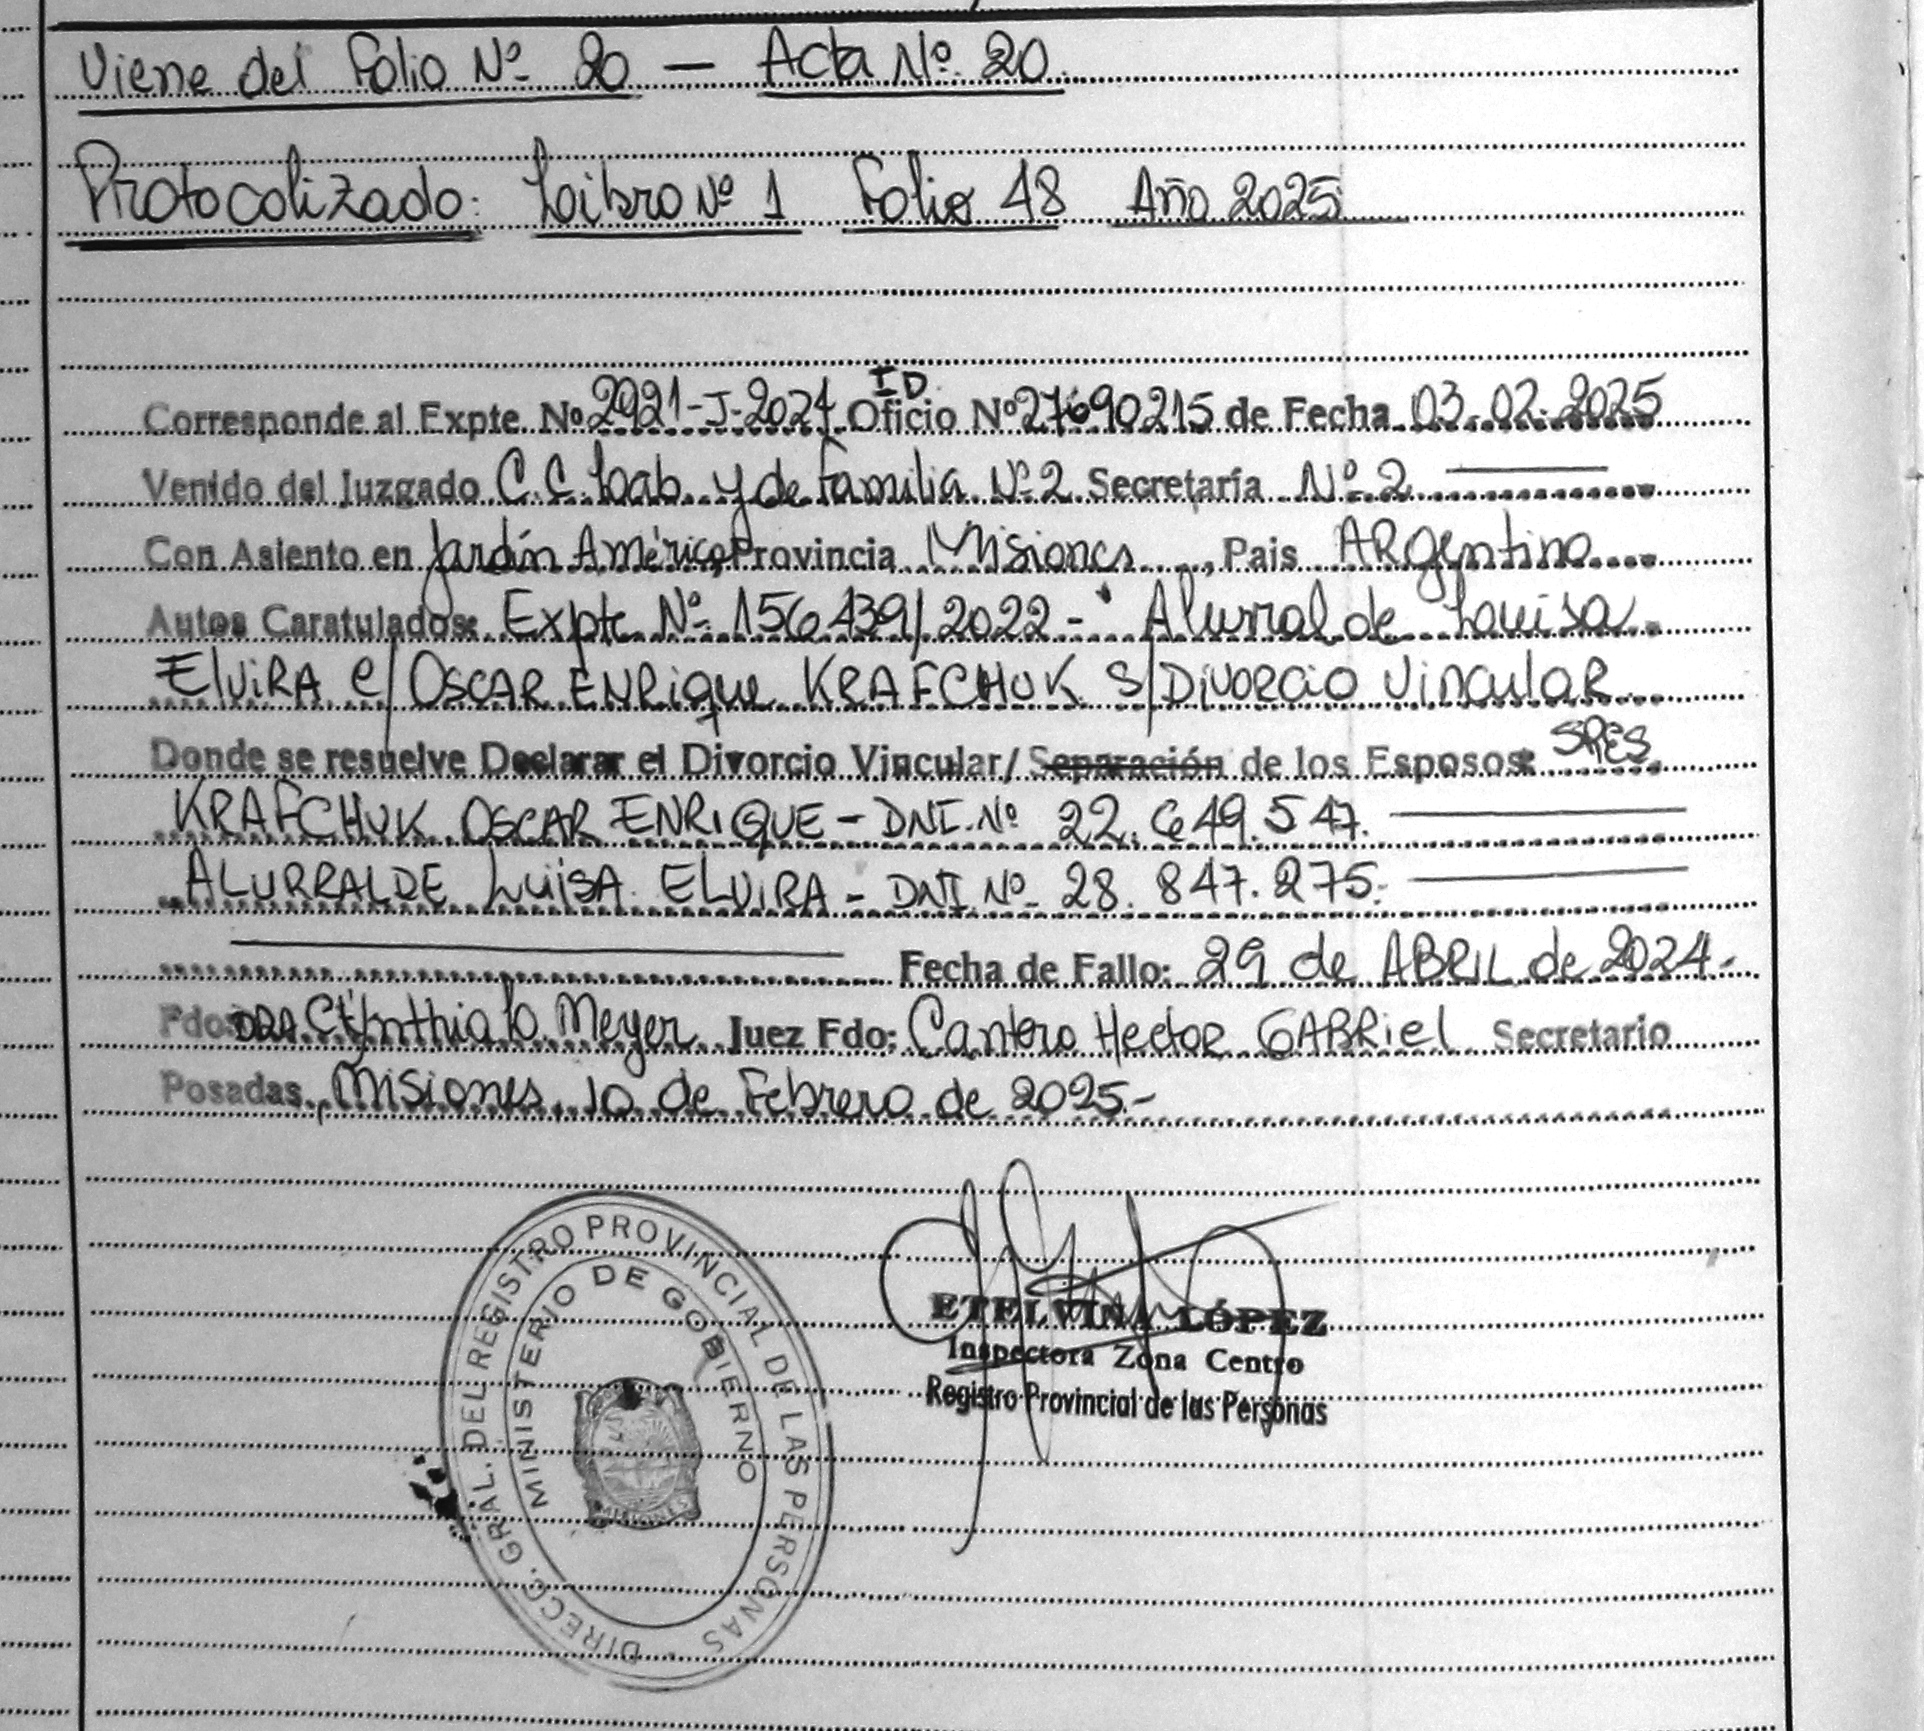 Viene del Folio Nº 20 — Acta Nº 20.
Protocolizado: Libro Nº 1 Folio 48 Año 2025
ID
Corresponde al Expte. Nº 2921-J-2024 Oficio Nº 27690215 de Fecha 03-02-2025
Venido del Juzgado C.C. Lab. y de Familia Nº 2 Secretaría Nº 2
Con Asiento en Jardín América, Provincia Misiones, Pais ARgentina
Autos Caratulados: Expte Nº 156439/2022-" Alurral de Louisa
ElviRA c/ OSCAR ENRique KRAFCHUK S/ DivoRcio VinculaR
Donde se resuelve Declarar el Divorcio Vincular/ Separación de los Esposos: SRES
KRAFCHUK OSCAR ENRIQUE - DNI. Nº 22.649.547.
ALURRALDE LUISA ELVIRA - DNI Nº 28.847.275.
Fecha de Fallo: 29 de ABRIL de 2024-
Fdo: DRA Cynthia Meyer Juez Fdo: Cantero Hector GABRiel Secretario
Posadas, Misiones, 10 de Febrero de 2025.-
DIRECC. GRAL. DEL REGISTRO PROVINCIAL DE LAS PERSONAS -
MINISTERIO DE GOBIERNO
MISIONES
ETELVINA LÓPEZ
Inspectora Zona Centro
Registro Provincial de las Personas